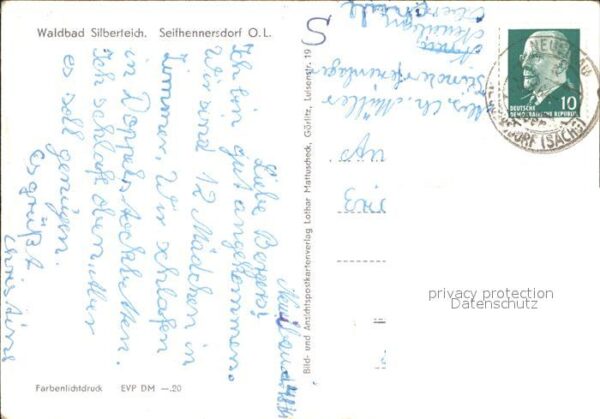 Waldbad Silberteich. Seifhennersdorf O.L.
Liebe Bergers!
Ich bin gut angekommen.
Wir sind 12 Mädchen in
Zimmer. Wir schlafen
in Doppelstockbetten.
Ich schlafe oben. Aber
es soll genügen.
Es grüßt
Christine
Farbenlichtdruck EVP DM —.20
Bild- und Ansichtspostkartenverlag Lothar Mattuscheck, Görlitz, Luisenstr. 19
S
Abs. Ch. Müller
DEUTSCHE
DEMOKRATISCHE REPUBLIK
10
DORF (SACHS)
privacy protection
Datenschutz